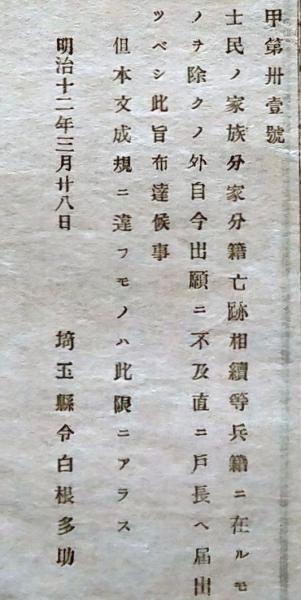 甲第卅壹號
士民ノ家族分家分籍亡跡相續等兵籍ニ在ルモ
ノヲ除クノ外自今出願ニ不及直ニ戸長ヘ届出
ツベシ此旨布達候事
但本文成規ニ違フモノハ此限ニアラス
明治十二年三月廿八日　埼玉縣令白根多助